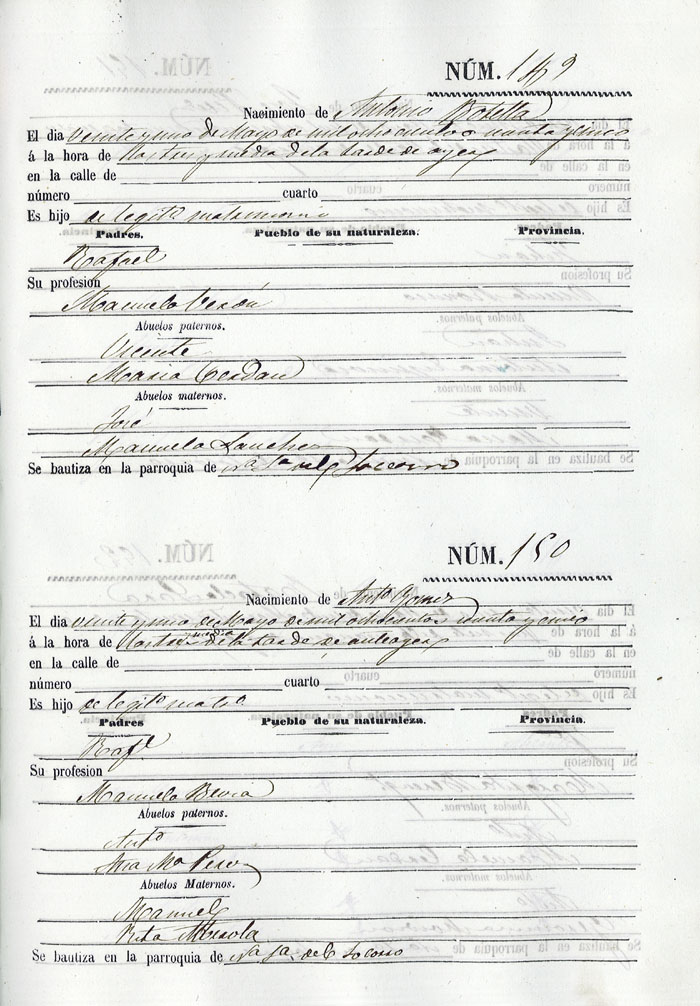 NÚM. 149
Nacimiento de Antonio Botella
El dia veinte y uno de Mayo de mil ochocientos y cinco
á la hora de las tres y media de la tarde de ayer
en la calle de
número cuarto
Es hijo de legito matrimonio
Padres. Pueblo de su naturaleza. Provincia.
Rafael
Su profesion
Manuela
Abuelos paternos.
Vicente
Maria Cerdan
Abuelos maternos.
José
Manuela Sanchez
Se bautiza en la parroquia de Socorro
NÚM. 150
Nacimiento de Anto Gomez
El dia veinte y uno de Mayo de mil ochocientos y cinco
á la hora de las tres y media de la tarde de anteayer
en la calle de
número cuarto
Es hijo de legito
Padres Pueblo de su naturaleza. Provincia.
Rafl
Su profesion
Manuela
Abuelos paternos.
Anto
Ma
Abuelos Maternos.
Manuel
Rita
Se bautiza en la parroquia de Socorro